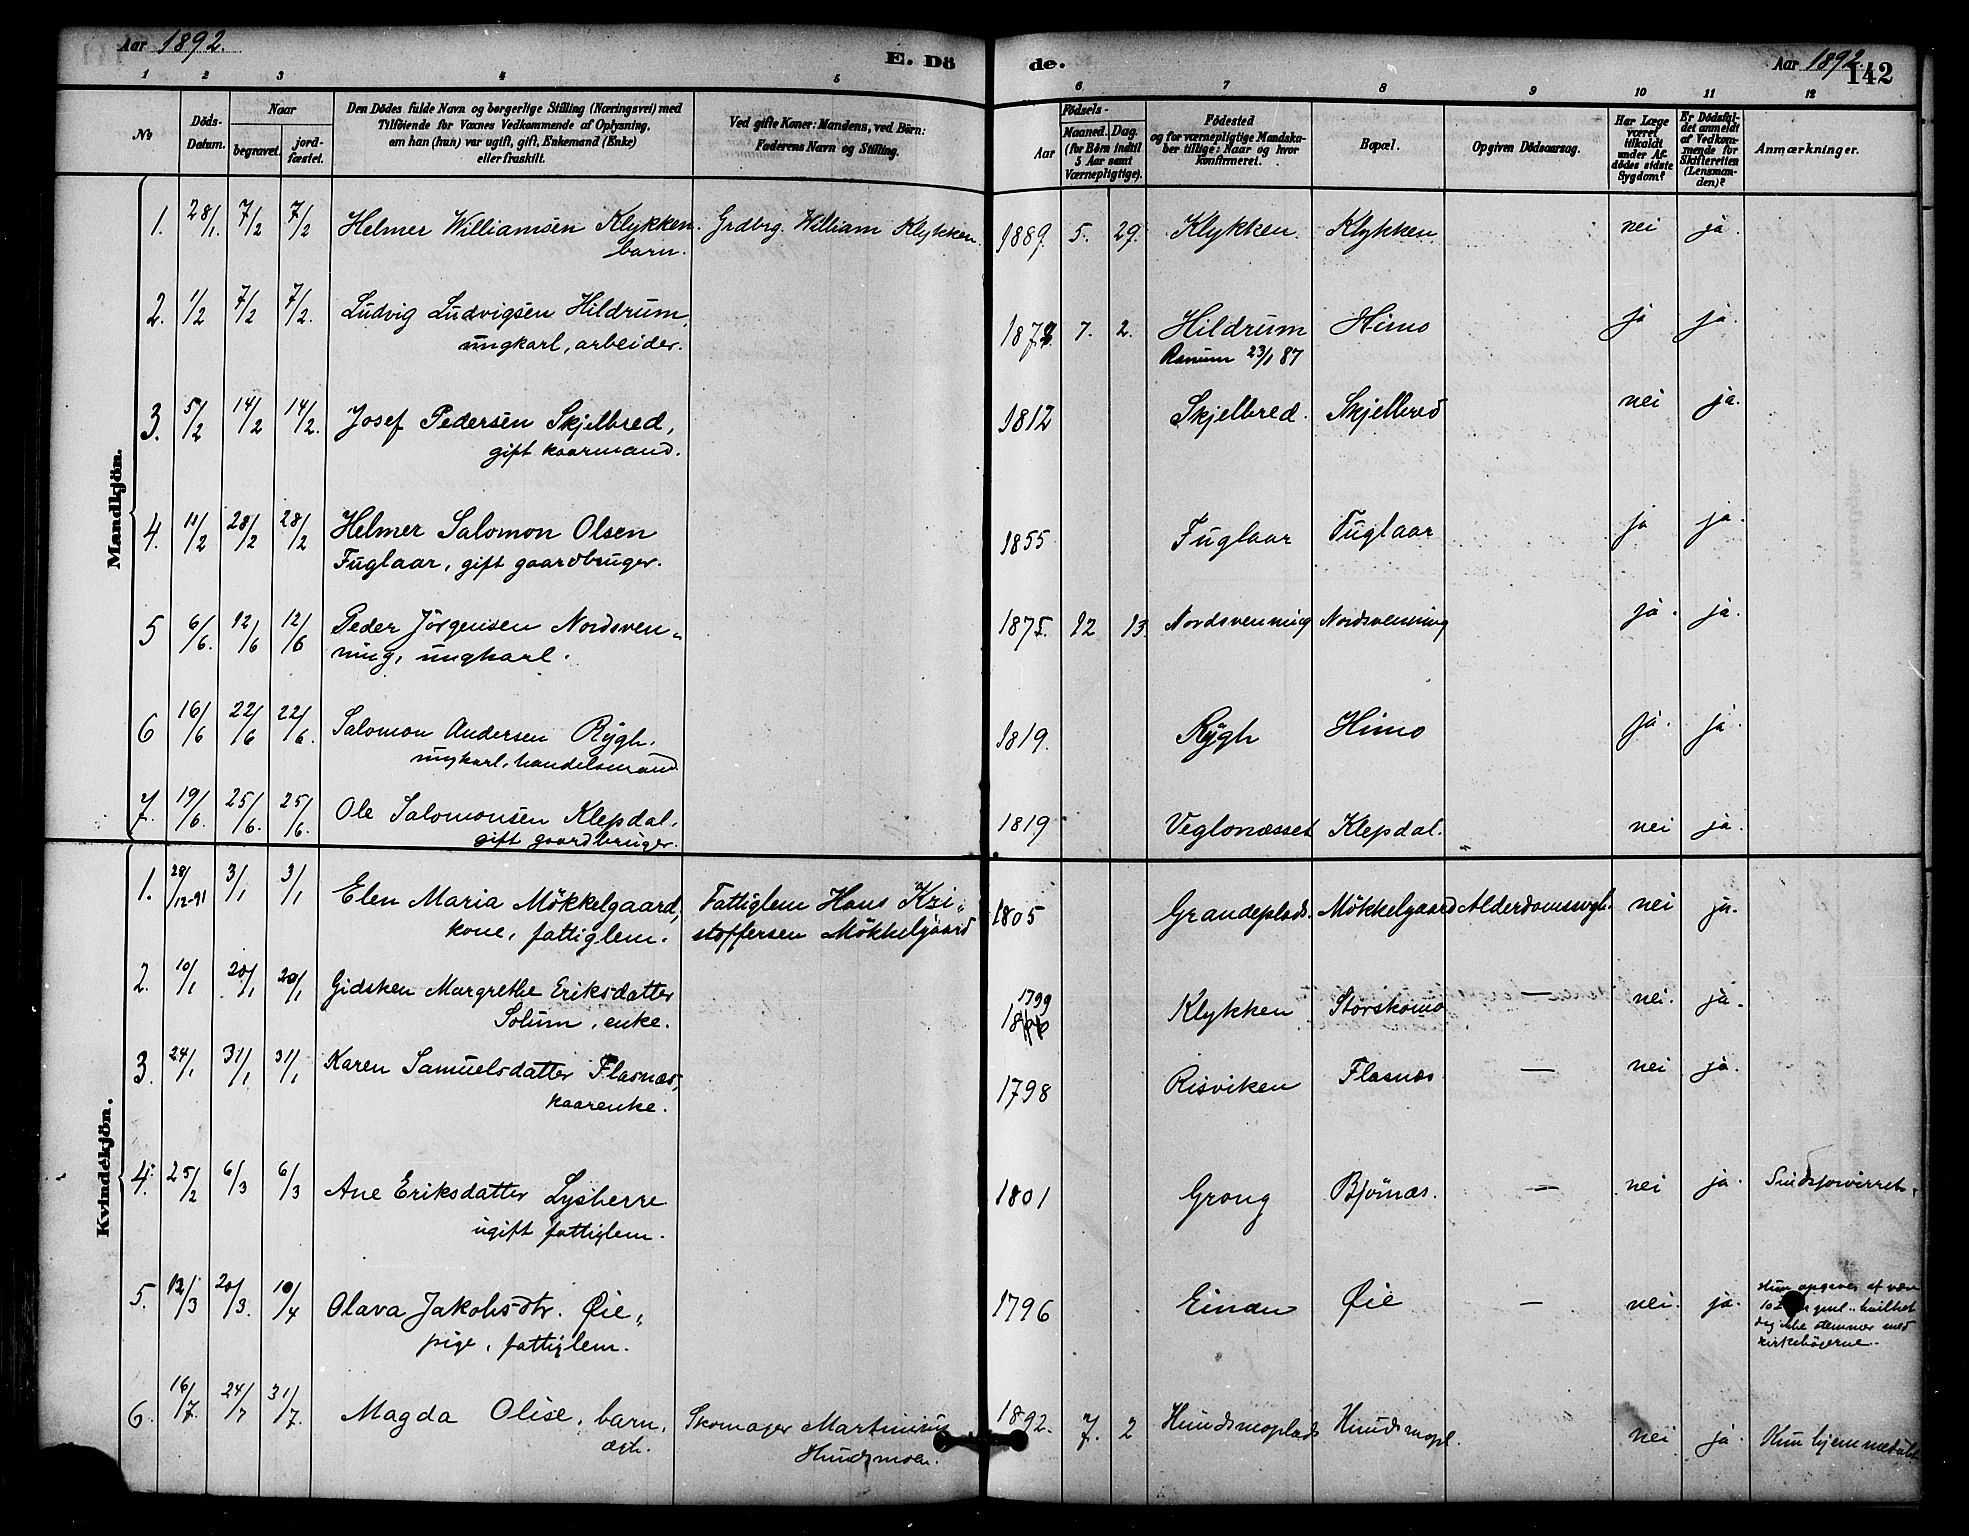 Aar 1892.
E. Dö
de.
Aar 1892.
142
1 2 3 4 5
6 7 8 9 10 11 12
No
Döds-
Datum.
Naar
begravet.
jord-
fæstet.
Den Dödes fulde Navn og borgerlige Stilling (Næringsvei) med
Tilföiende for Voxnes Vedkommende af Oplysning,
om han (hun) var ugift, gift, Enkemand (Enke)
eller fraskilt.
Ved gifte Koner: Mandens, ved Börn:
Faderens Navn og Stilling.
Födsels-
Aar
Maaned. Dag.
(for Börn indtil
5 Aar samt
Værnepligtige).
Födested
og for værnepligtige Mandska-
ber tillige: Naar og hvor
konfirmeret.
Bopæl.
Opgiven Dödsaarsag.
Har Læge
været
tilkaldt
under Af-
dödes sidste
Sygdom?
Er Dödsfal-
det anmeldt
af Vedkom-
mende for
Skifteretten
(Lensman-
den)?
Anmærkninger.
Mandkjön.
1. 28/1. 7/2 7/2 Helmer Williamsen Klykken. Grdbrg. William Klykken. 1889. 5. 29. Klykken. Klykken. nei ja.
barn.
2. 1/2 7/2 7/2. Ludvig Ludvigsen Hildrum, 1872 7. 2. Hildrum Himo ja ja.
ungkarl, arbeider. Ranum 23/1 87
3. 5/2 14/2 14/2. Josef Pedersen Skjelbred, 1812 Skjelbred. Skjelbred nei ja.
gift kaarmand.
4. 11/2 28/2 28/2 Helmer Salomon Olsen 1855 Fuglaar Fuglaar ja ja.
Fuglaar, gift gaardbruger.
5 6/6. 12/6 12/6 Peder Jörgensen Nordsven- 1875. 12 13 Nordsvenning Nordsvenning ja. ja.
ning, ungkarl.
6 16/6 22/6 22/6. Salomon Andersen Rygh, 1819. Rygh Himo ja. ja.
ungkarl, handelsmand.
7. 19/6. 25/6. 25/6. Ole Salomonsen Klepdal, 1819 Veglonæsset Klepdal. nei ja.
gift gaardbruger.
Kvindekjön.
1. 28/12-91 3/1 3/1 Elen Maria Mökkelgaard, Fattiglem Hans Kri- 1805 Grandeplads. Mökkelgaard Alderdomssvgh. nei ja.
kone, fattiglem. stoffersen Mökkelgaard
2. 10/1 20/1 20/1 Gidsken Margrethe Eriksdatter 1799 Klykken Storskomo — nei. ja.
Solum, enke.
3. 24/1 31/1 31/1 Karen Samuelsdatter Flasnæs, 1798 Risviken Flasnæs. — nei ja.
kaarenke.
4. 25/2 6/3 6/3 Ane Eriksdatter Lysberre 1801 Grong Björnæs. — nei ja. Sindsforvirret.
ugift fattiglem.
5. 12/3 20/3. 10/4 Olava Jakobsdtr. Øie, 1796 Einan Øie — nei. ja. Hun opgives at være
pige, fattiglem. 102 gml., hvilket
dog ikke stemmer med
kirkebögerne.
6. 16/7. 24/7 31/7. Magda Olise, barn, Skomager Martinius 1892. 7. 2 Hundsmoplads Hundsmopl. nei ja. Hun hjemmedöbt
ægt. Hundsmoen.